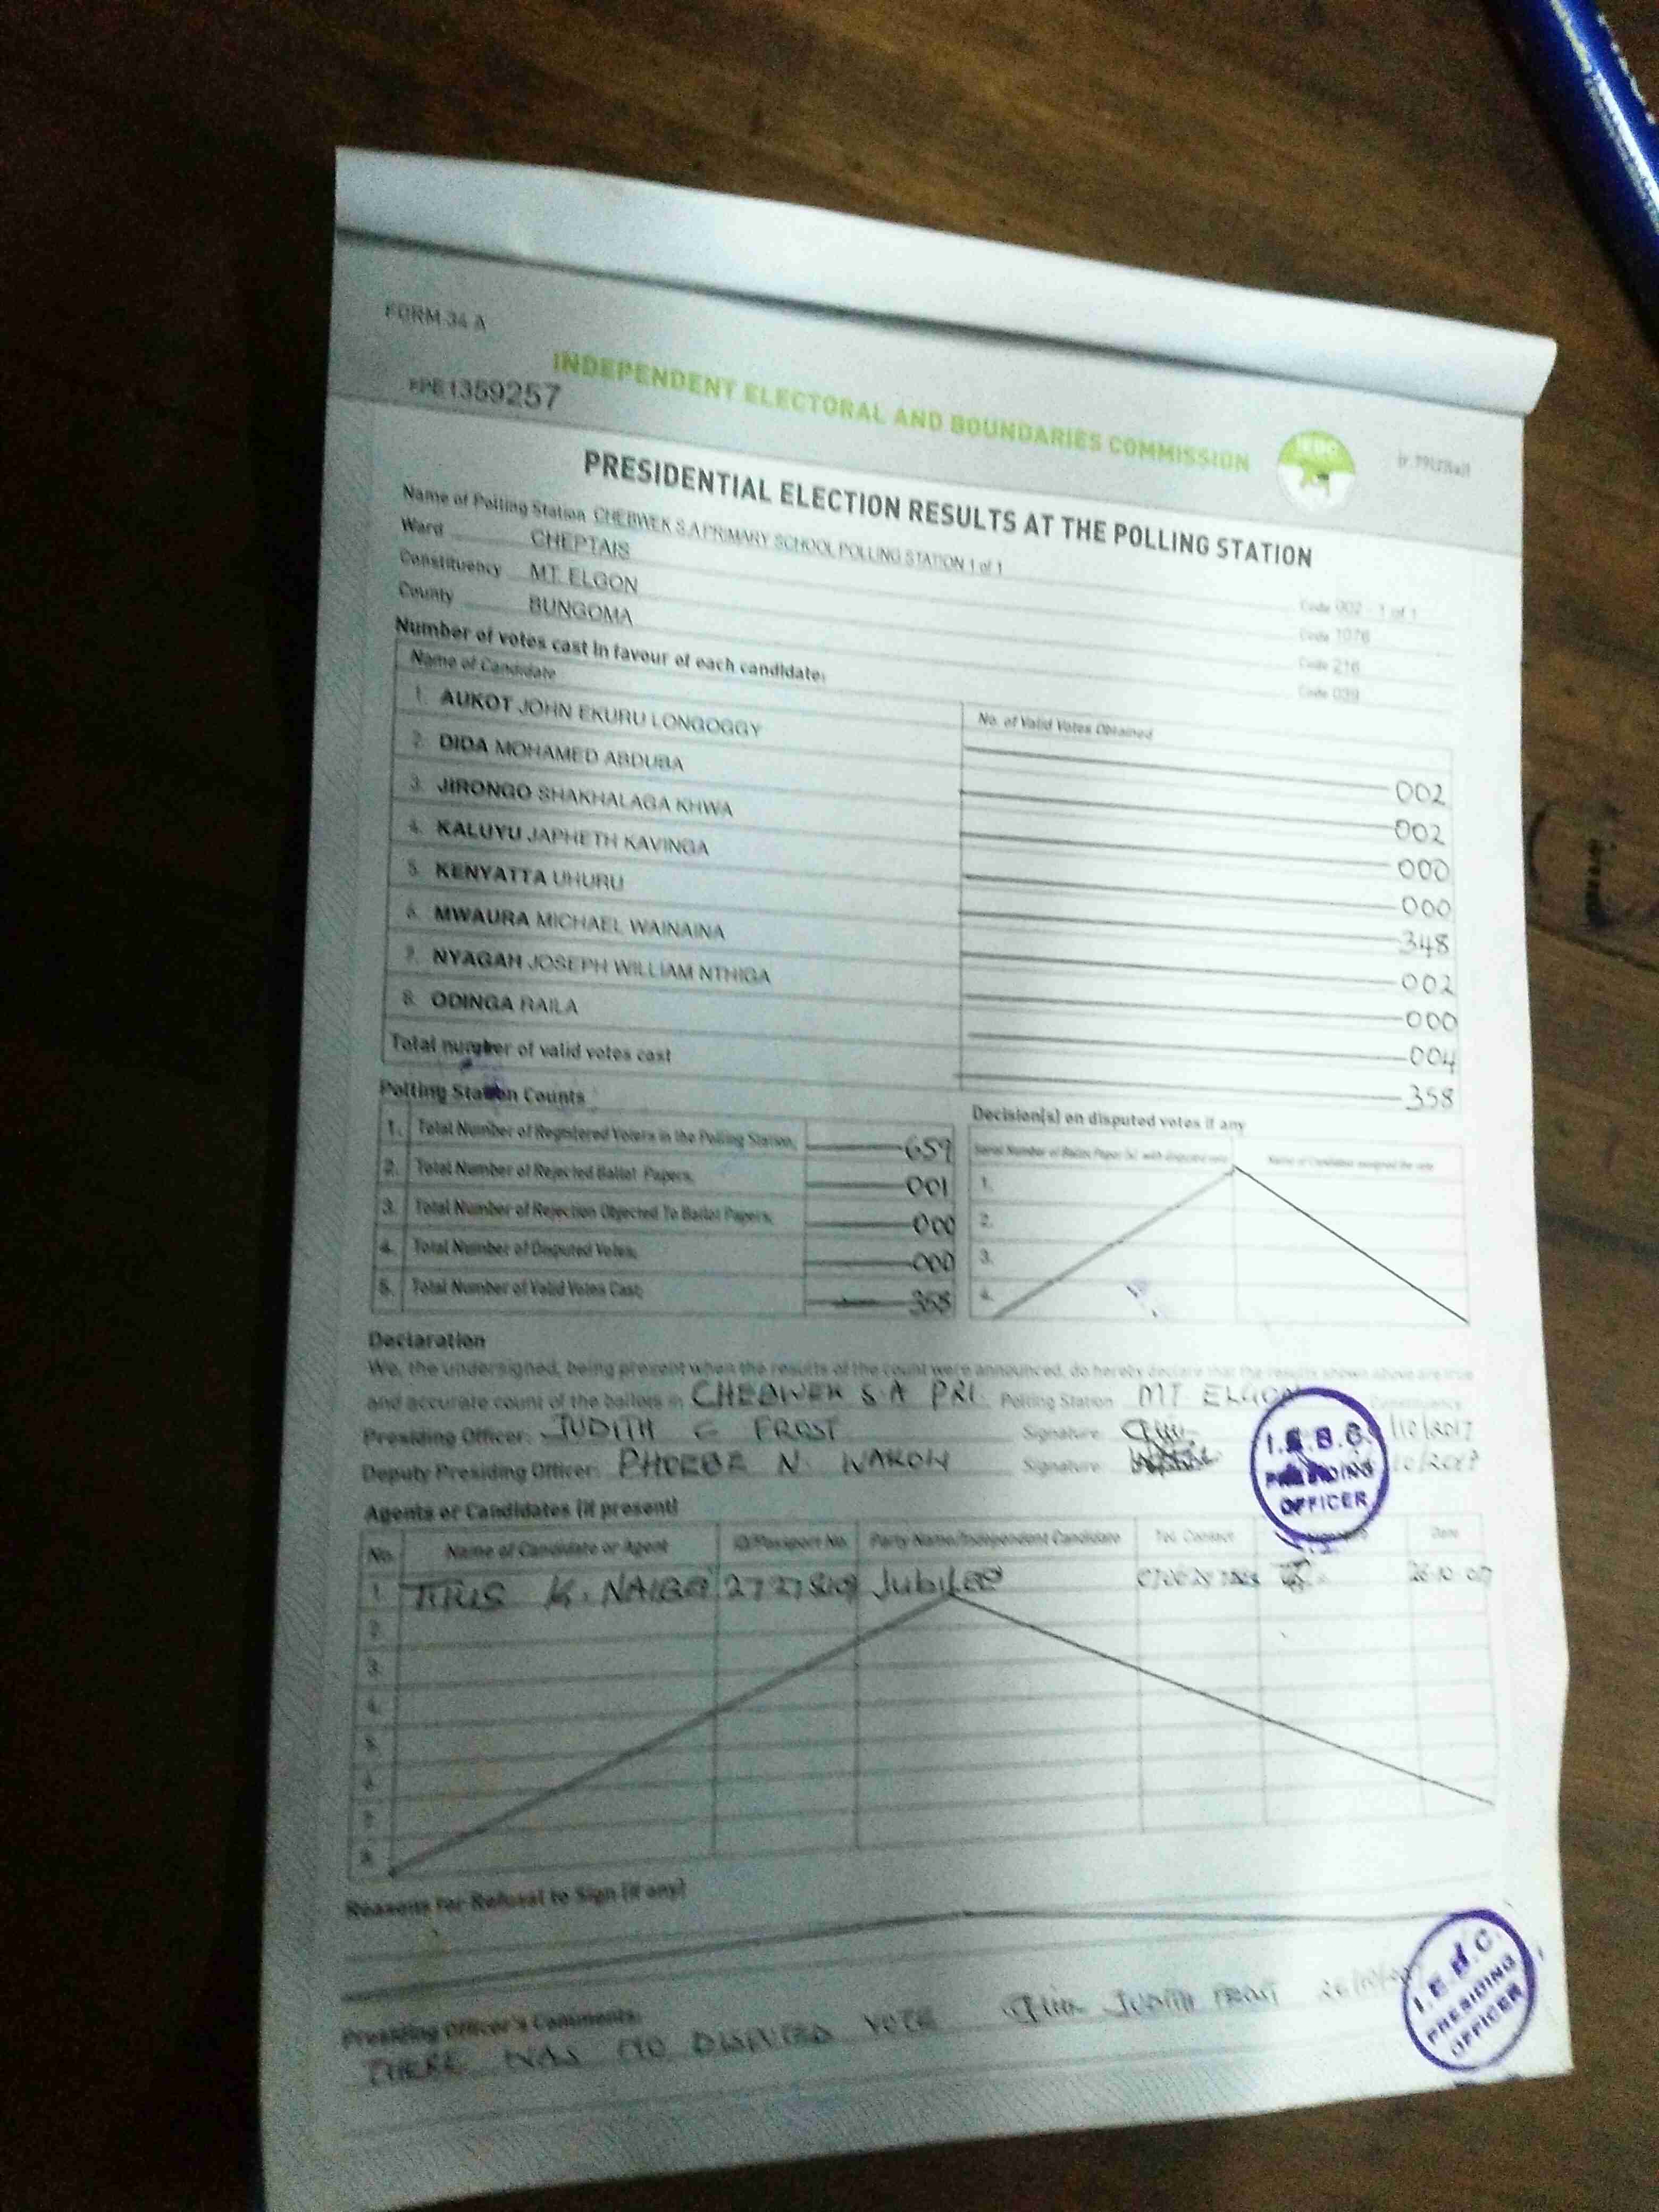 FORM 34 A
INDEPENDENT ELECTORAL AND BOUNDARIES COMMISSION
1359257
PRESIDENTIAL ELECTION RESULTS AT THE POLLING STATION
Name of Polling Station CHEBWEK S.A PRIMARY SCHOOL POLLING STATION 1 of 1 Code 002 - 1 of 1
Ward CHEPTAIS Code 1076
Constituency MT. ELGON Code 216
County BUNGOMA Code 039
Number of votes cast in favour of each candidate:
Name of Candidate No. of Valid Votes Obtained
1. AUKOT JOHN EKURU LONGOGGY 002
2. DIDA MOHAMED ABDUBA 002
3. JIRONGO SHAKHALAGA KHWA 000
4. KALUYU JAPHETH KAVINGA 000
5. KENYATTA UHURU 348
6. MWAURA MICHAEL WAINAINA 002
7. NYAGAH JOSEPH WILLIAM NTHIGA 000
8. ODINGA RAILA 004
Total number of valid votes cast 358
Polling Station Counts
1. Total Number of Registered Voters in the Polling Station; 659
2. Total Number of Rejected Ballot Papers; 001
3. Total Number of Rejection Objected To Ballot Papers; 000
4. Total Number of Disputed Votes; 000
5. Total Number of Valid Votes Cast; 358
Decision(s) on disputed votes if any
Serial Number of Ballot Paper (s) with disputed vote Name of Candidate assigned the vote
1.
2.
3.
4.
Declaration
We, the undersigned, being present when the results of the count were announced, do hereby declare that the results shown above are true
and accurate count of the ballots in CHEBWEK S.A PRI. Polling Station MT ELGON Constituency
Presiding Officer: JUDITH C FROST Signature
Deputy Presiding Officer: PHOEBE N. Signature
I.E.B.C.
PRESIDING
OFFICER
Agents or Candidates (if present)
No. Name of Candidate or Agent ID/Passport No. Party Name/Independent Candidate Tel. Contact Date
1. TITUS K. Jubilee
2.
3.
4.
5.
6.
7.
8.
Reasons for Refusal to Sign (if any)
Presiding Officer's Comments:
THERE WAS NO DISPUTED VOTE JUDITH FROST
I.E.B.C.
PRESIDING
OFFICER